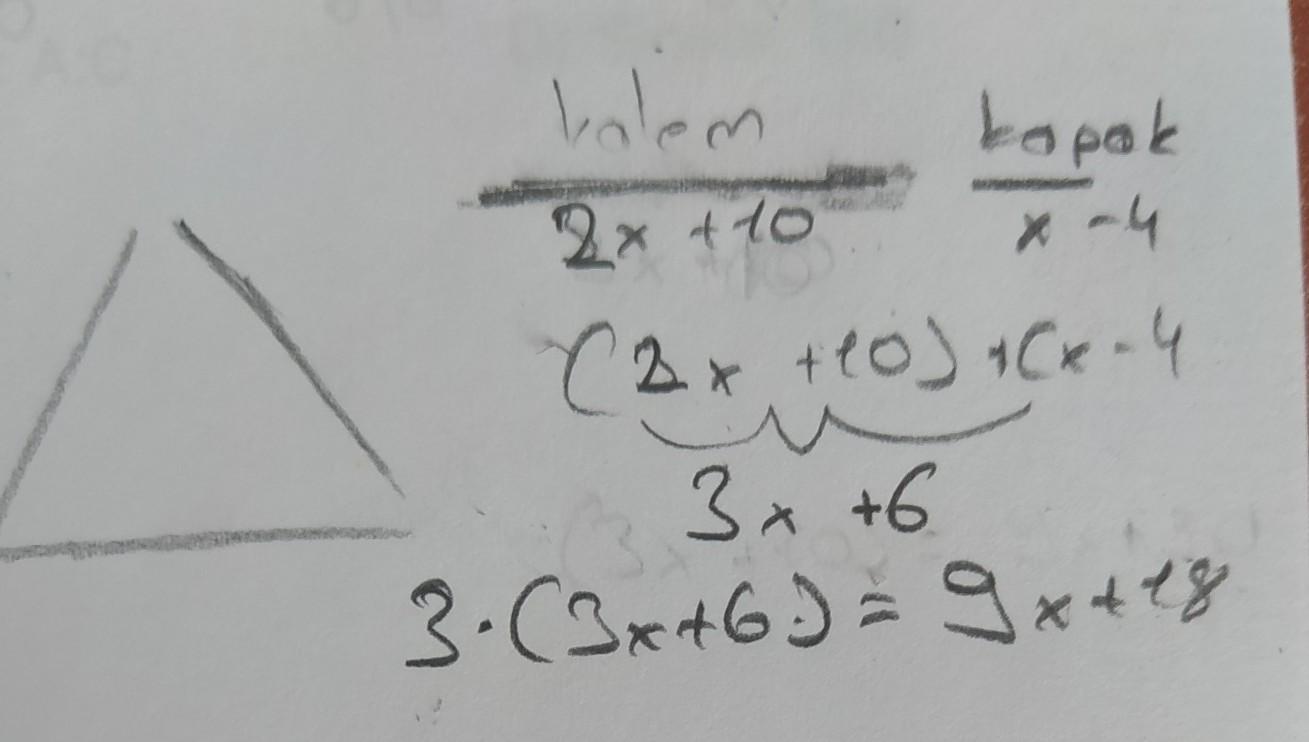 kalem kapak
2x +10 x -4
(2x +10) +(x -4
3x +6
3·(3x+6) = 9x+18